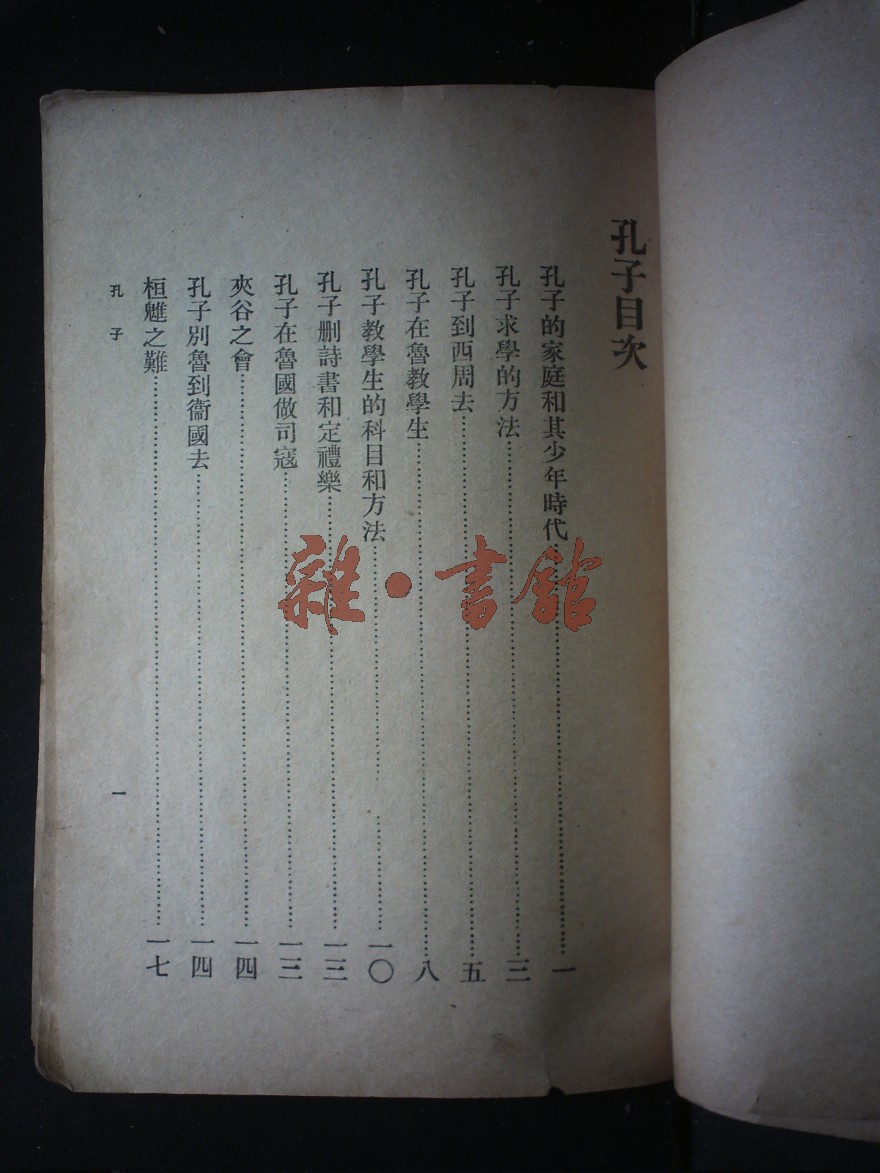 孔子目次
孔子的家庭和其少年時代……一
孔子求學的方法……三
孔子到西周去……五
孔子在魯教學生……八
孔子教學生的科目和方法……一〇
孔子删詩書和定禮樂……一三
孔子在魯國做司寇……一三
夾谷之會……一四
孔子別魯到衞國去……一四
桓魋之難……一七
孔子
一
雜·書館